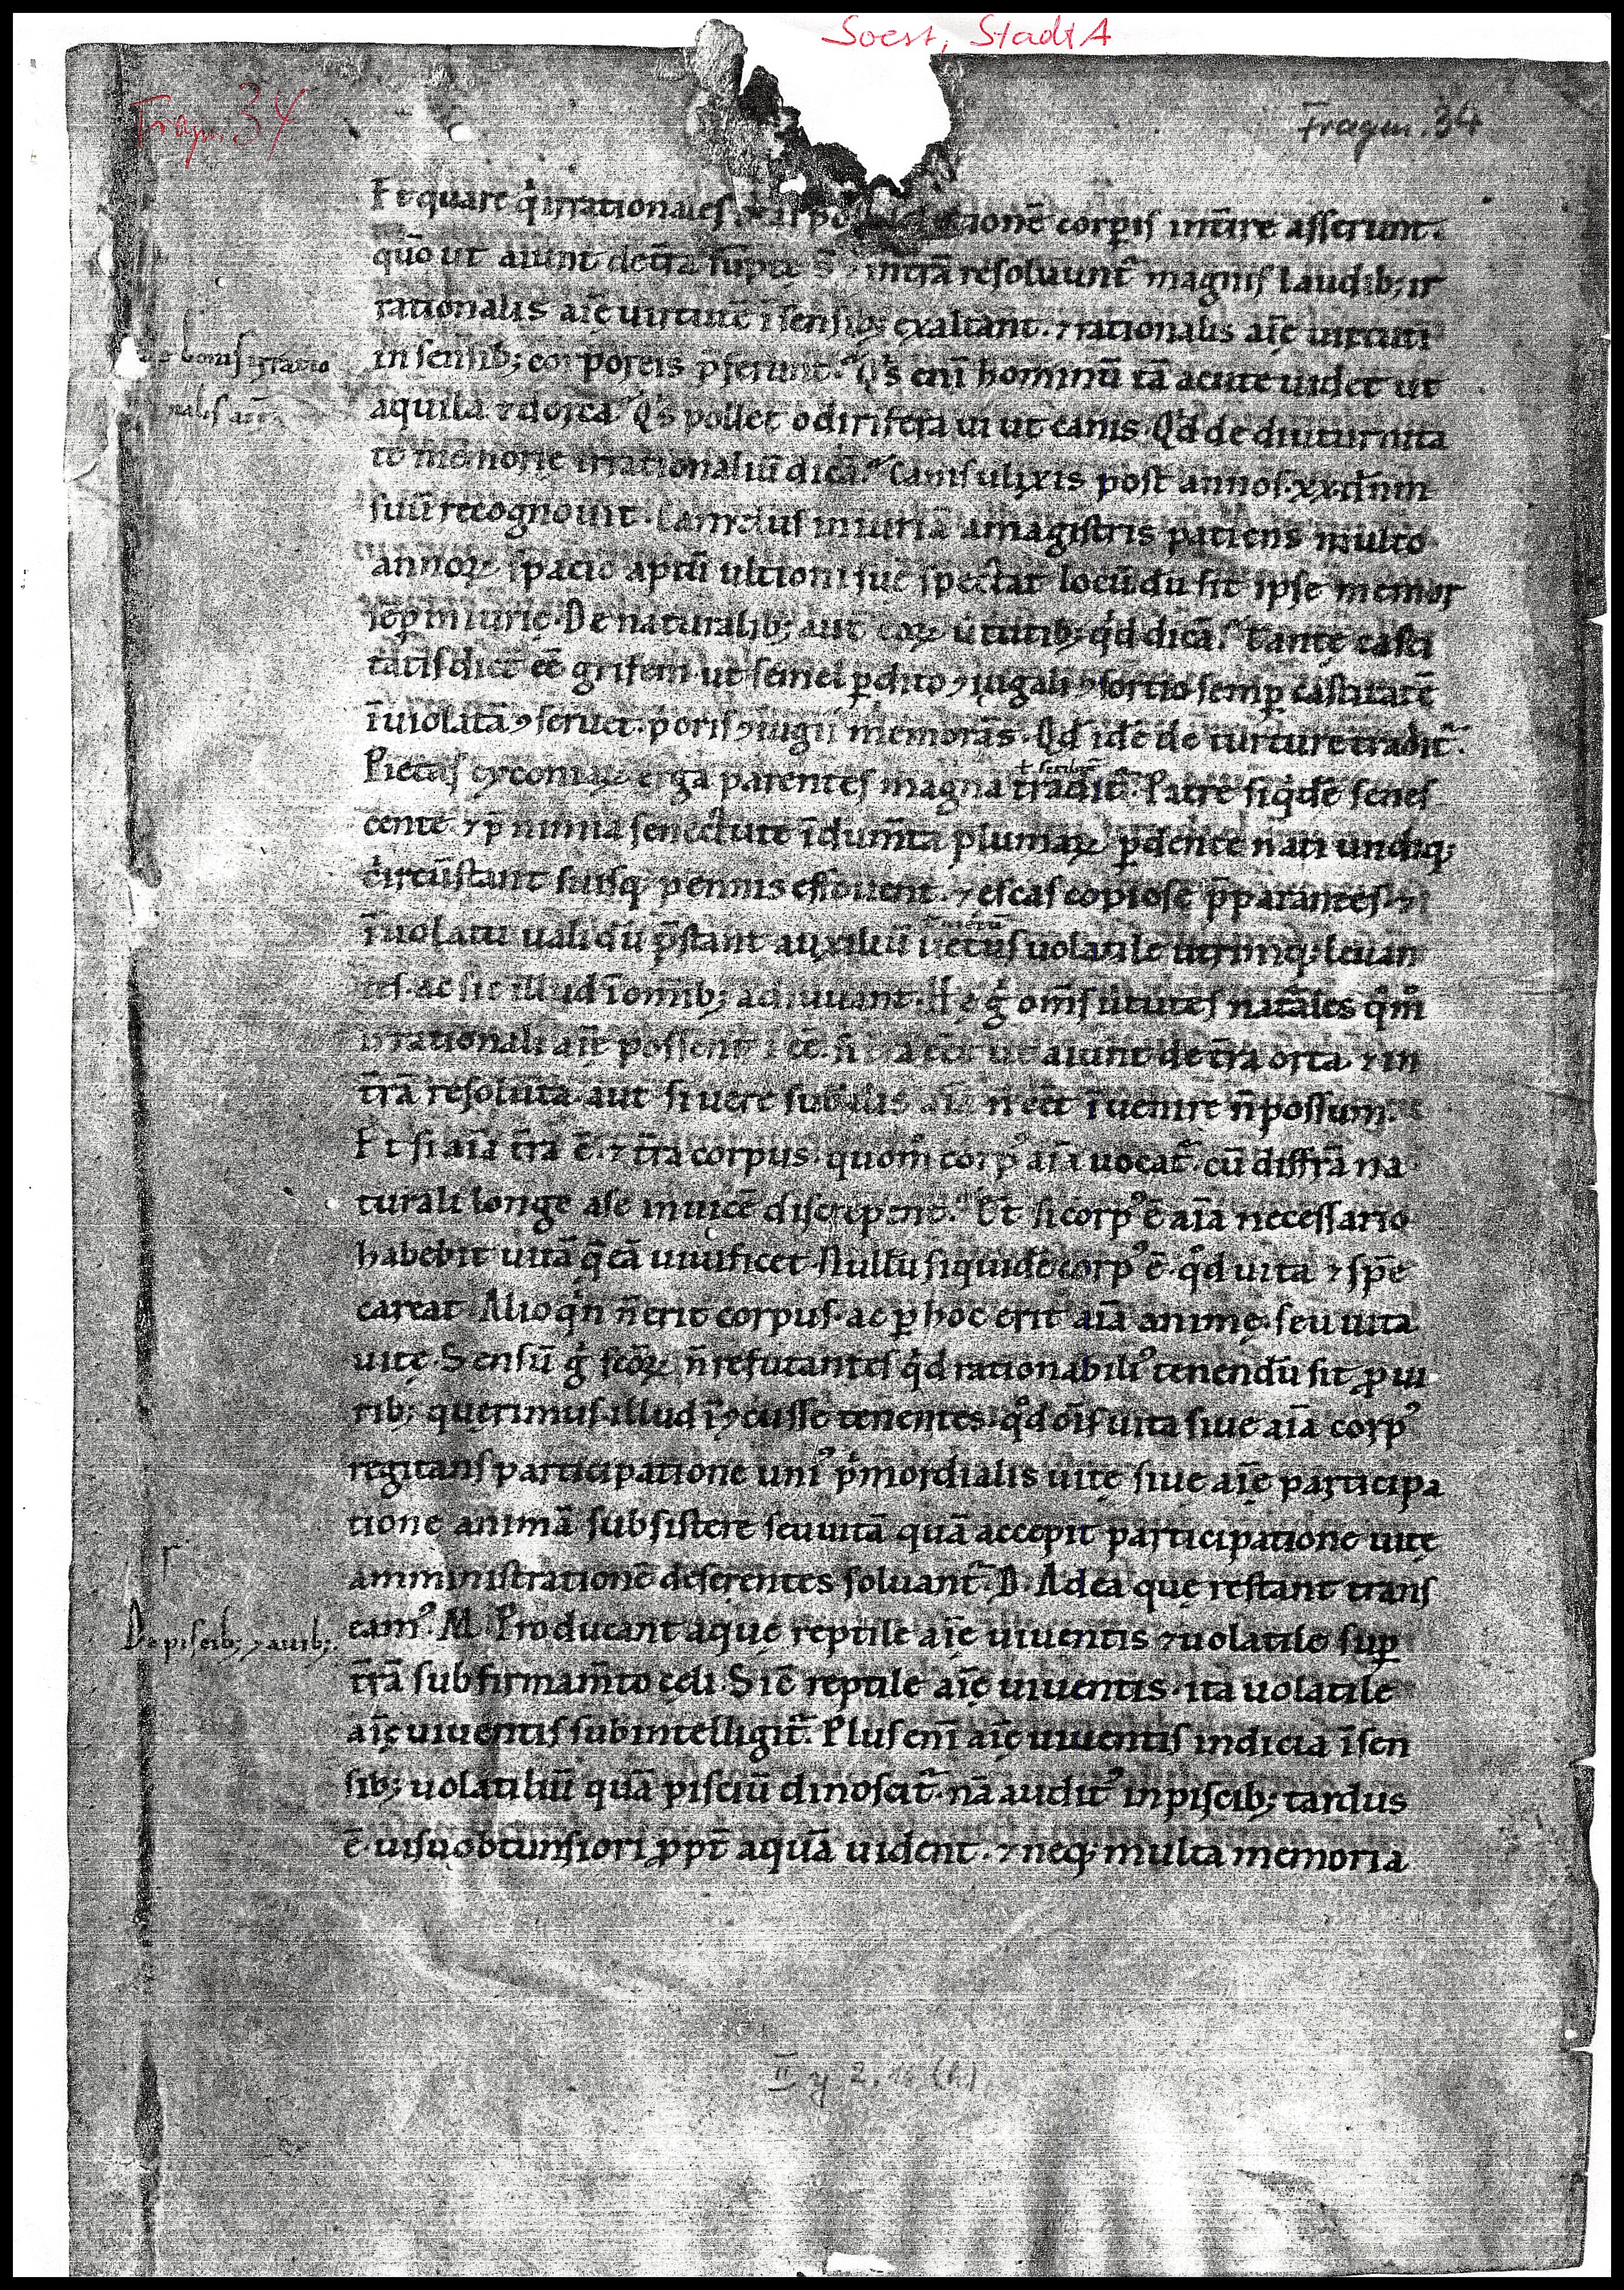 Soest, StadtA
Fragm. 34
Fragm. 34
Et quare q̇ irrationales post ionē corpis int̄ire asserunt.
quō ut aiunt de tr̄a sūptę s̄ ⁊ in trā resoluunt᷑ magnis laudib; ir
rationalis aīę uirtutē ī sensib; exaltant. ⁊ rationalis aīę uirtuti
in sensib; corporeis p̄ferunt. Q's eni hominū tā acute uidet ut
aquila ⁊ dorca. Q's pollet odirifera ui ut canis. Qd de diuturnita
te memorię irrationaliū dicā. Canis ulixis post annos .xx. dn̄m
suū recognouit. Camelus iniuriā a magistris patiens multo
annoꝝ spacio aptū ultioni suę spectat locū du sit ipse memor
sēp iniurię. De naturalib; aut eoꝝ ututib; qd dicā. Tantę casti
tatis dict eē grifem ut semel pdito ꝯiugali ꝯsortio semp castitatē
īuiolatā ꝯseruet. p̄oris ꝯiugii memorās. Qd idē de turture tradit᷑.
ł scribit᷑
Pietas cyconiaꝝ erga parentes magna tradit᷑. Patrē siq̇dē senes
cente ⁊ p̄ nimia senectute īdum̄ta plumaꝝ pdente nati undiq;
circūstant suisq; pennis effouent. ⁊ escas copiose p̄parantes. ⁊
ī uolatu ualidū p̄stant auxiliū uetus uolatile utrinq; leuan
tes. ac sic illud ī omib; adiuuant. Hę g̊ om̄s ututes natales qm̊
irrationali aīę possent iēē. n̄ ita eēt ut aiunt de tr̄a orta. ⁊ in
tr̄a resoluta. aut si uere subalis aīa n̄ eēt īuenire n̄ possum.
Et si aīa tr̄a ē. ⁊ tr̄a corpus. quom̊ corp᷒ aīa uocat᷑. cū diffr̄a na
turali longe a se inuicē discrepent. Et si corp᷒ ē aīa necessario
habebit uitā q̄ eā uiuificet. Nullū siquidē corp᷒ ē. qd uita ⁊ spē
careat. Alioq̇n n̄ erit corpus. ac p hoc erit aīa animę. seu uita
uitę. Sensū g̊ scōꝝ n̄ refutantes qd rationabili᷒ tenendū sit p ui
rib; querimus. illud īꝯcusse tenentes. qd oīs uita siue aīa corp᷒
regitans participatione uni᷒ p̍mordialis uitę siue aīę participa
tione animā subsistere seu uitā quā accepit participatione uitę
amministrationē deserentes soluant᷑. D. Ad ea quę restant trans
eam᷒. M. Producant aquę reptile aīę uiuentis ⁊ uolatile sup
tr̄ā sub firmam̄to cęli. Sic̄ reptile aīę uiuentis. ita uolatile
aīę uiuentis subintelligit᷑. Plus eni aīę uiuentis indicia ī sen
sib; uolatiliū quā pisciū dinoscit᷑. nā audit᷒ in piscib; tardus
ē. uisu obtunsiori ppt̄ aquā uident. ⁊ neq; multa memoria
De bonis irratio
nalis aīę
De piscib; ⁊ auib;.